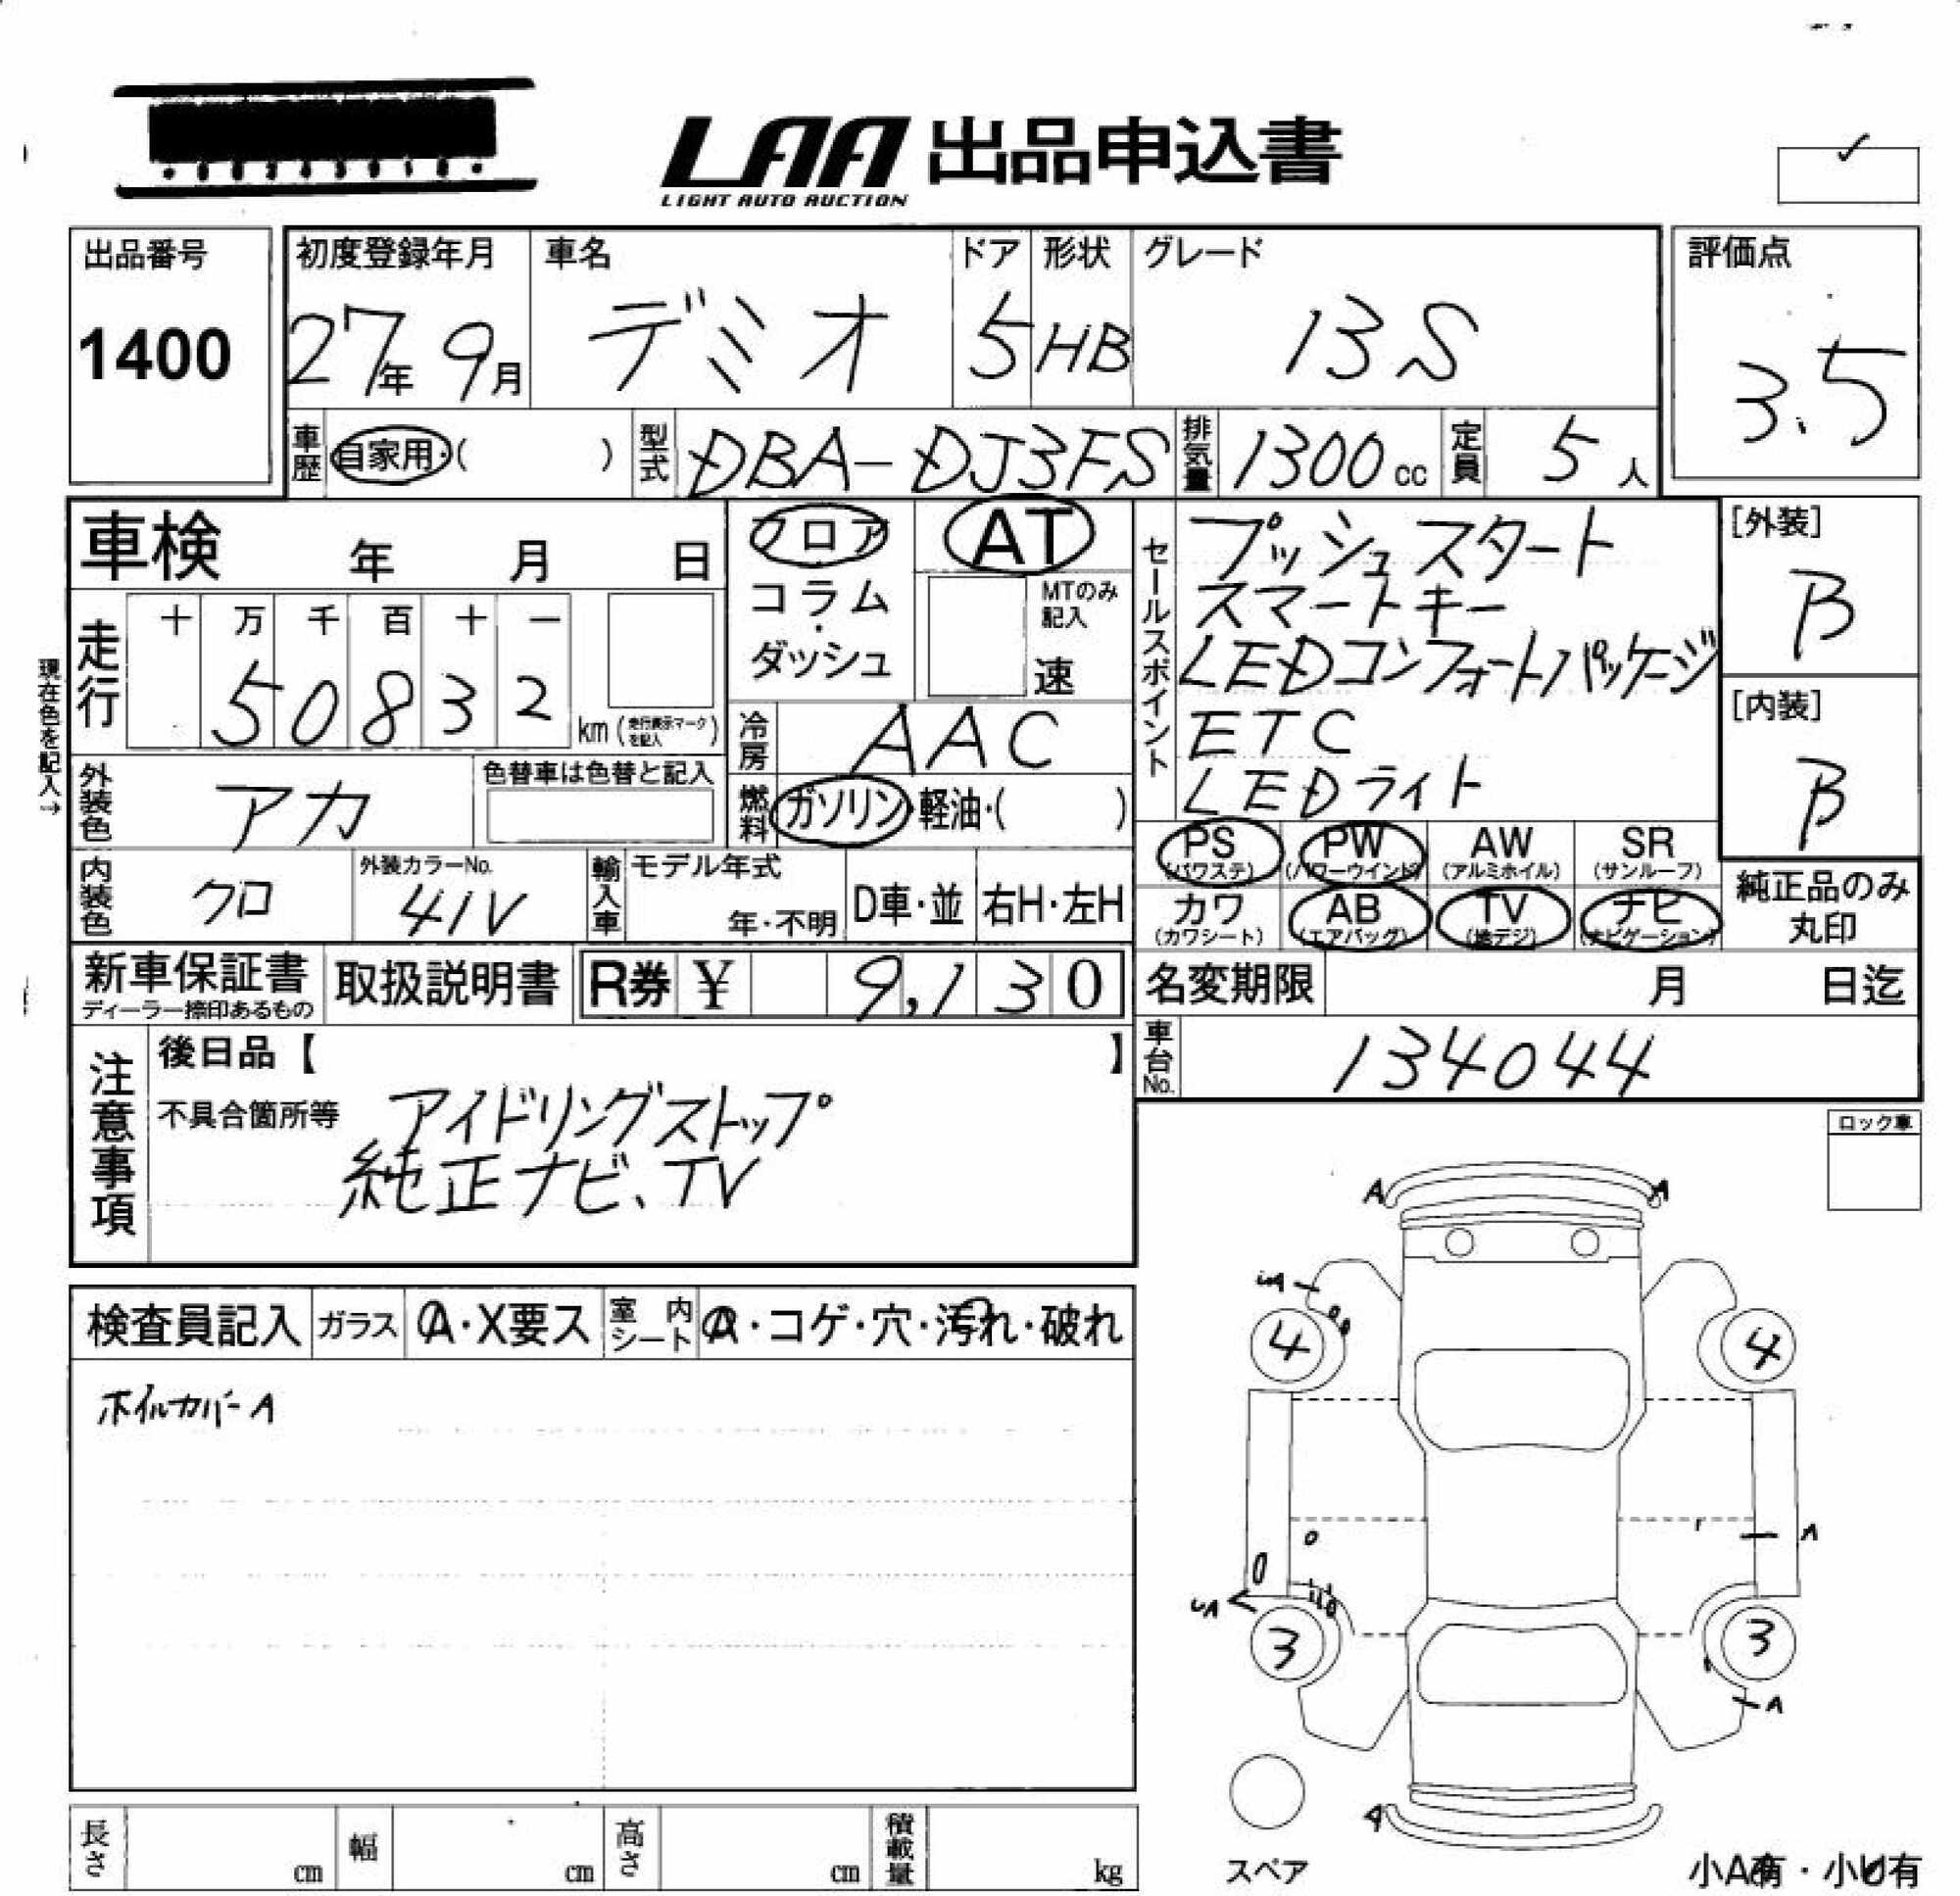 LAA 出品申込書
LIGHT AUTO AUCTION
出品番号
1400
初度登録年月
27年 9月
車名
デミオ
ドア
5
形状
HB
グレード
13S
評価点
3.5
車歴 自家用・( )
型式 DBA-DJ3FS
排気量 1300cc
定員 5人
車検 年 月 日
フロア
コラム
・
ダッシュ
AT
MTのみ
記入
速
セールスポイント
プッシュスタート
スマートキー
LEDコンフォートパッケージ
ETC
LEDライト
[外装]
B
[内装]
B
現在色を記入→
走行
十 万 千 百 十 一
5 0 8 3 2
km(走行表示マークを記入)
冷房 AAC
燃料 ガソリン・軽油・( )
外装色 アカ
色替車は色替と記入
内装色 クロ
外装カラーNo.
41V
輸入車
モデル年式
年・不明
D車・並
右H・左H
PS
(パワステ)
PW
(パワーウインド)
AW
(アルミホイル)
SR
(サンルーフ)
カワ
(カワシート)
AB
(エアバッグ)
TV
(地デジ)
ナビ
(ナビゲーション)
純正品のみ
丸印
新車保証書
ディーラー捺印あるもの
取扱説明書
R券 ¥ 9,130
名変期限 月 日迄
車台No. 134044
注意事項
後日品【 】
不具合箇所等
アイドリングストップ
純正ナビ、TV
ロック車
検査員記入
ガラス
A・X要ス
室内シート
A・コゲ・穴・汚れ・破れ
ホイルカバーA
A
A
4
4
A
3
3
A
スペア
小A有・小U有
長さ cm
幅 cm
高さ cm
積載量 kg